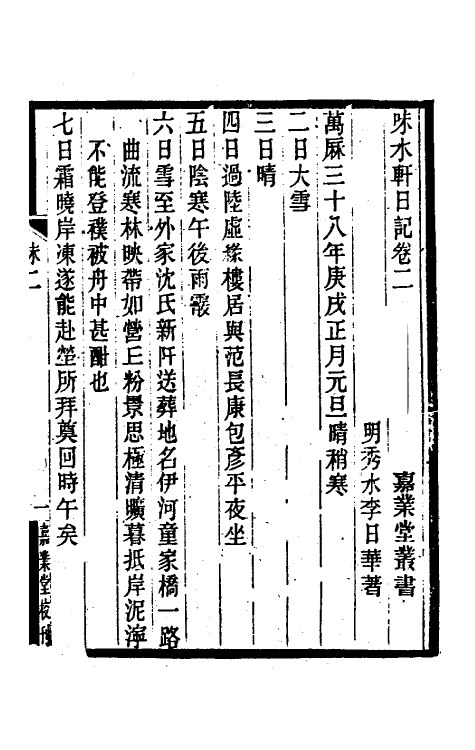 味水軒日記卷二
嘉業堂叢書
明秀水李日華著
萬厤三十八年庚戌正月元旦晴稍寒
二日大雪
三日晴
四日過陸虛樓居與范長康包彥平夜坐
五日陰寒午後雨霰
六日雪至外家沈氏新阡送葬地名伊河童家橋一路
曲流寒林映帶如營丘粉景思極清曠暮抵岸泥濘
不能登襆被舟中甚酣也
七日霜曉岸凍遂能赴塋所拜奠回時午矣
味二
一
嘉業堂校刊